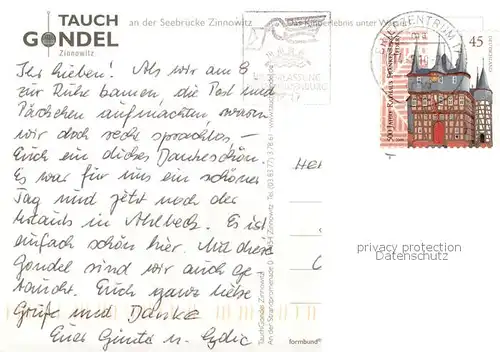 TAUCH
GONDEL
Zinnowitz
an der Seebrücke Zinnowitz
Das Naturerlebnis unter Wasser
Ihr lieben! Als wir am 8
zur Ruhe kamen, die Post und
Päckchen aufmachten, waren
wir doch recht sprachlos -
Euch ein dickes Dankeschön.
Es war für uns ein schöner
Tag und jetzt noch der
Urlaub in Ahlbeck. Es ist
einfach schön hier. Mit dieser
Gondel sind wir auch ge
taucht. Euch ganz liebe
Grüße und Danke
Eure Günter u. Lydia
TauchGondel Zinnowitz
formbund
45
500 Jahre Rathaus Frankenberg
privacy protection
Datenschutz